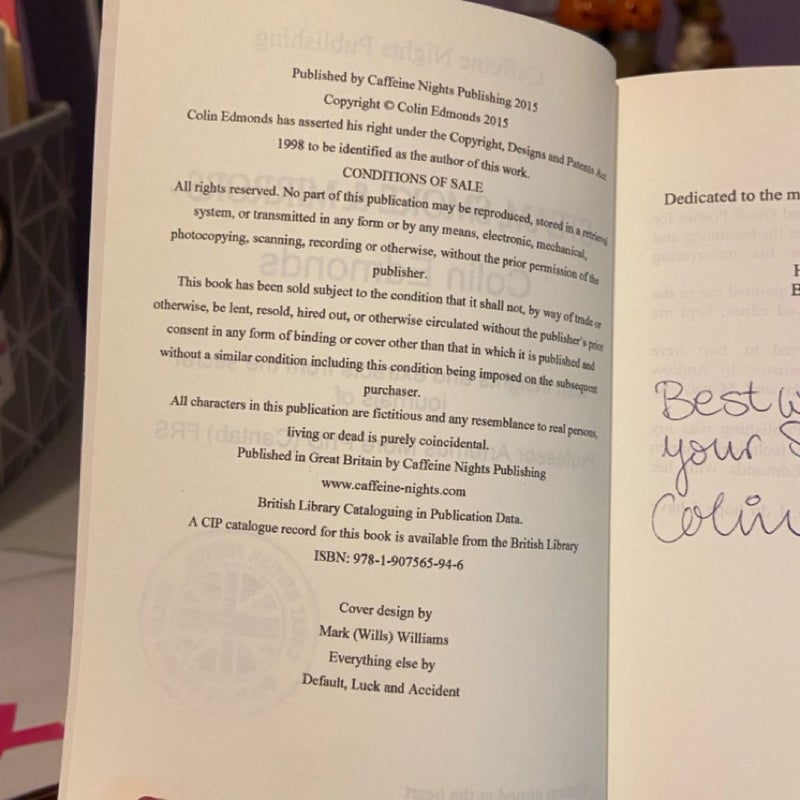 Published by Caffeine Nights Publishing 2015
Copyright © Colin Edmonds 2015
Colin Edmonds has asserted his right under the Copyright, Designs and Patents Act
1998 to be identified as the author of this work.
CONDITIONS OF SALE
All rights reserved. No part of this publication may be reproduced, stored in a retrieval
system, or transmitted in any form or by any means, electronic, mechanical,
photocopying, scanning, recording or otherwise, without the prior permission of the
publisher.
This book has been sold subject to the condition that it shall not, by way of trade or
otherwise, be lent, resold, hired out, or otherwise circulated without the publisher's prior
consent in any form of binding or cover other than that in which it is published and
without a similar condition including this condition being imposed on the subsequent
purchaser.
All characters in this publication are fictitious and any resemblance to real persons,
living or dead is purely coincidental.
Published in Great Britain by Caffeine Nights Publishing
www.caffeine-nights.com
British Library Cataloguing in Publication Data.
A CIP catalogue record for this book is available from the British Library
ISBN: 978-1-907565-94-6
Cover design by
Mark (Wills) Williams
Everything else by
Default, Luck and Accident
Dedicated to the m
H
B
Best w
your S
Colin